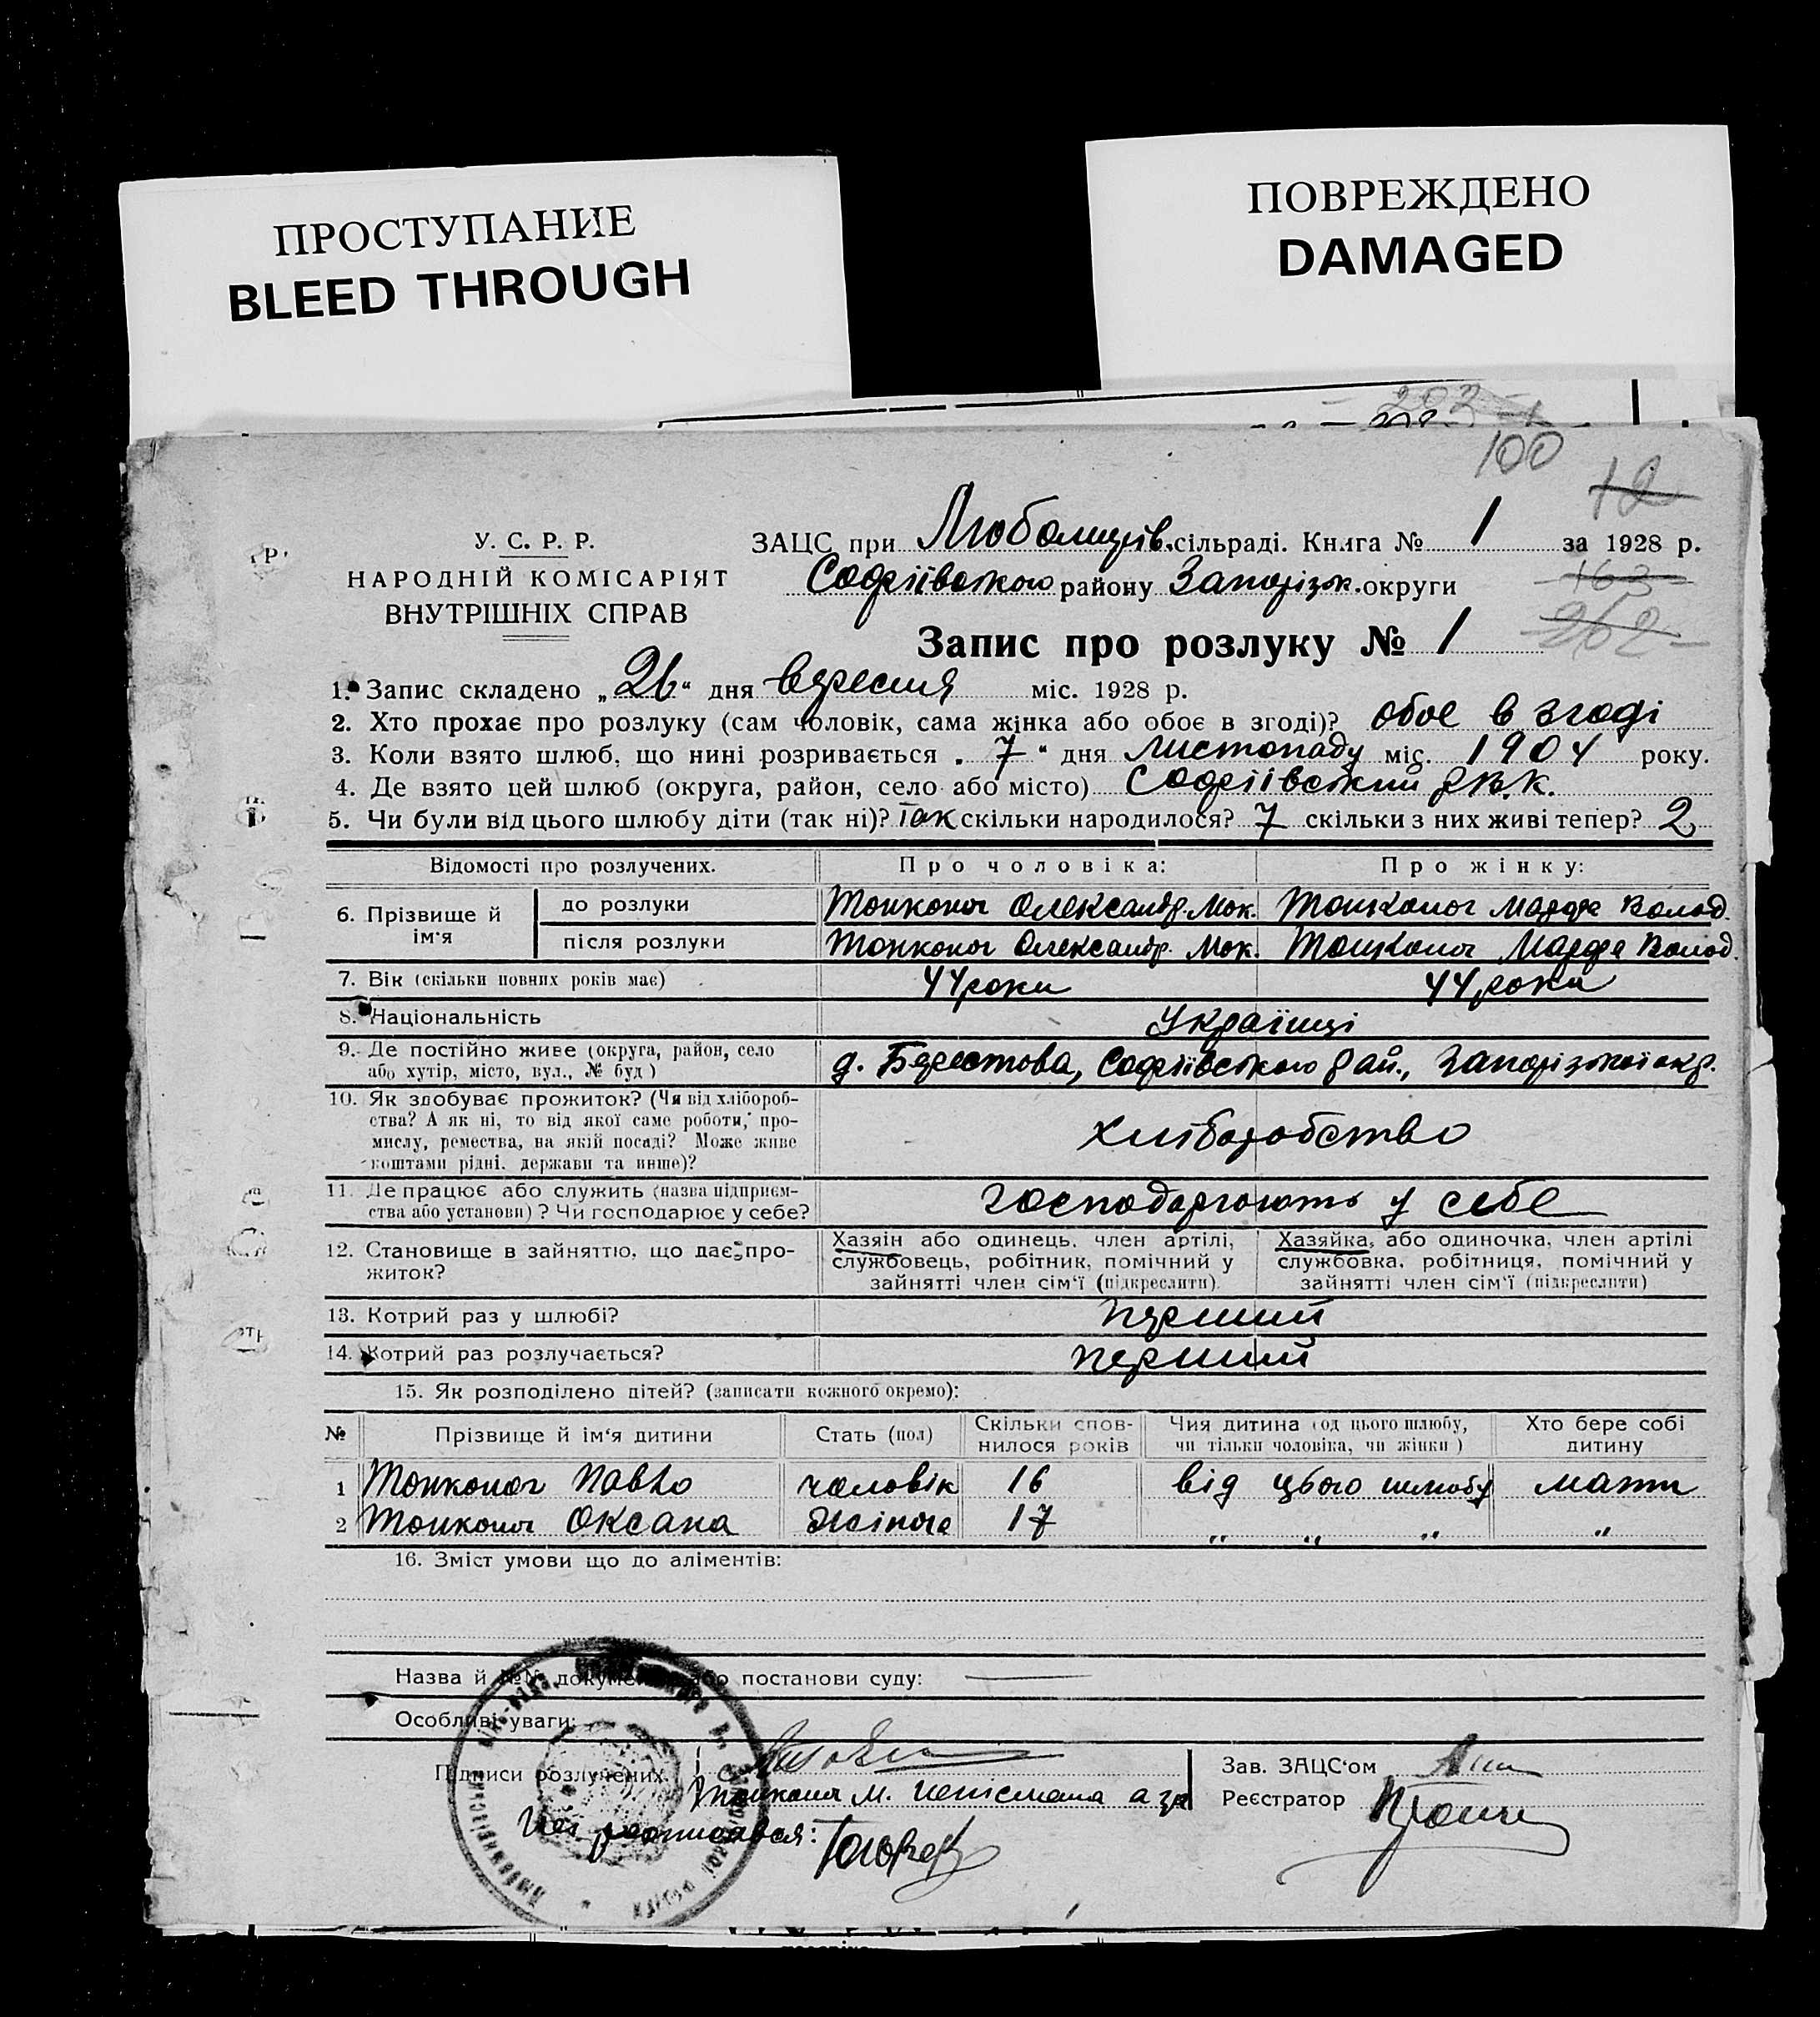 ПРОСТУПАНИЕ
BLEED THROUGH
ПОВРЕЖДЕНО
DAMAGED
100
12
У. С. Р. Р.
НАРОДНІЙ КОМІСАРІЯТ
ВНУТРІШНІХ СПРАВ
ЗАЦС при Любомирів. сільраді. Книга № 1 за 1928 р.
Софіївського району Запоріж. округи
163
262
Запис про розлуку № 1
1. Запис складено „26“ дня вересня міс. 1928 р.
2. Хто прохає про розлуку (сам чоловік, сама жінка або обоє в згоді)? обоє в згоді
3. Коли взято шлюб, що нині розривається „7“ дня листопаду міс. 1904 року.
4. Де взято цей шлюб (округа, район, село або місто) Софіївський
5. Чи були від цього шлюбу діти (так ні)? так скільки народилося? 7 скільки з них живі тепер? 2
Відомості про розлучених. Про чоловіка: Про жінку:
6. Прізвище й ім'я до розлуки Тонконог Олександр. Мок. Тонконог Марфа Волод.
після розлуки Тонконог Олександр. Мок. Тонконог Марфа Волод.
7. Вік (скільки повних років має) 44 роки 44 роки
8. Національність Українці
9. Де постійно живе (округа, район, село або хутір, місто, вул., № буд) д. Берестова, Софіївського рай., Запорізької окр.
10. Як здобуває прожиток? (Чи від хлібороб-
ства? А як ні, то від якої саме роботи, про-
мислу, ремества, на якій посаді? Може живе
коштами рідні. держави та инше)?
хліборобство
11. Де працює або служить (назва підприєм-
ства або установи)? Чи господарює у себе?
господарюють у себе
12. Становище в зайняттю, що дає про-
житок?
Хазяін або одинець, член артілі,
службовець, робітник, помічний у
зайнятті член сім'ї (підкреслити).
Хазяйка, або одиночка, член артілі
службовка, робітниця, помічний у
зайнятті член сім'ї (підкреслити)
13. Котрий раз у шлюбі? перший
14. Котрий раз розлучається? перший
15. Як розподілено дітей? (записати кожного окремо):
№ Прізвище й ім'я дитини Стать (пол) Скільки спов-нилося років Чия дитина (од цього шлюбу, чи тільки чоловіка, чи жінки) Хто бере собі дитину
1 Тонконог Павло чоловік 16 від цього шлюбу мати
2 Тонконог Оксана жіноча 17 „ „ „ „
16. Зміст умови що до аліментів:
Назва й №№ документа або постанови суду:
Особливі уваги:
Підписи розлучених
Тонконог М. неписмена а за
неї росписався:
Зав. ЗАЦС'ом
Реєстратор